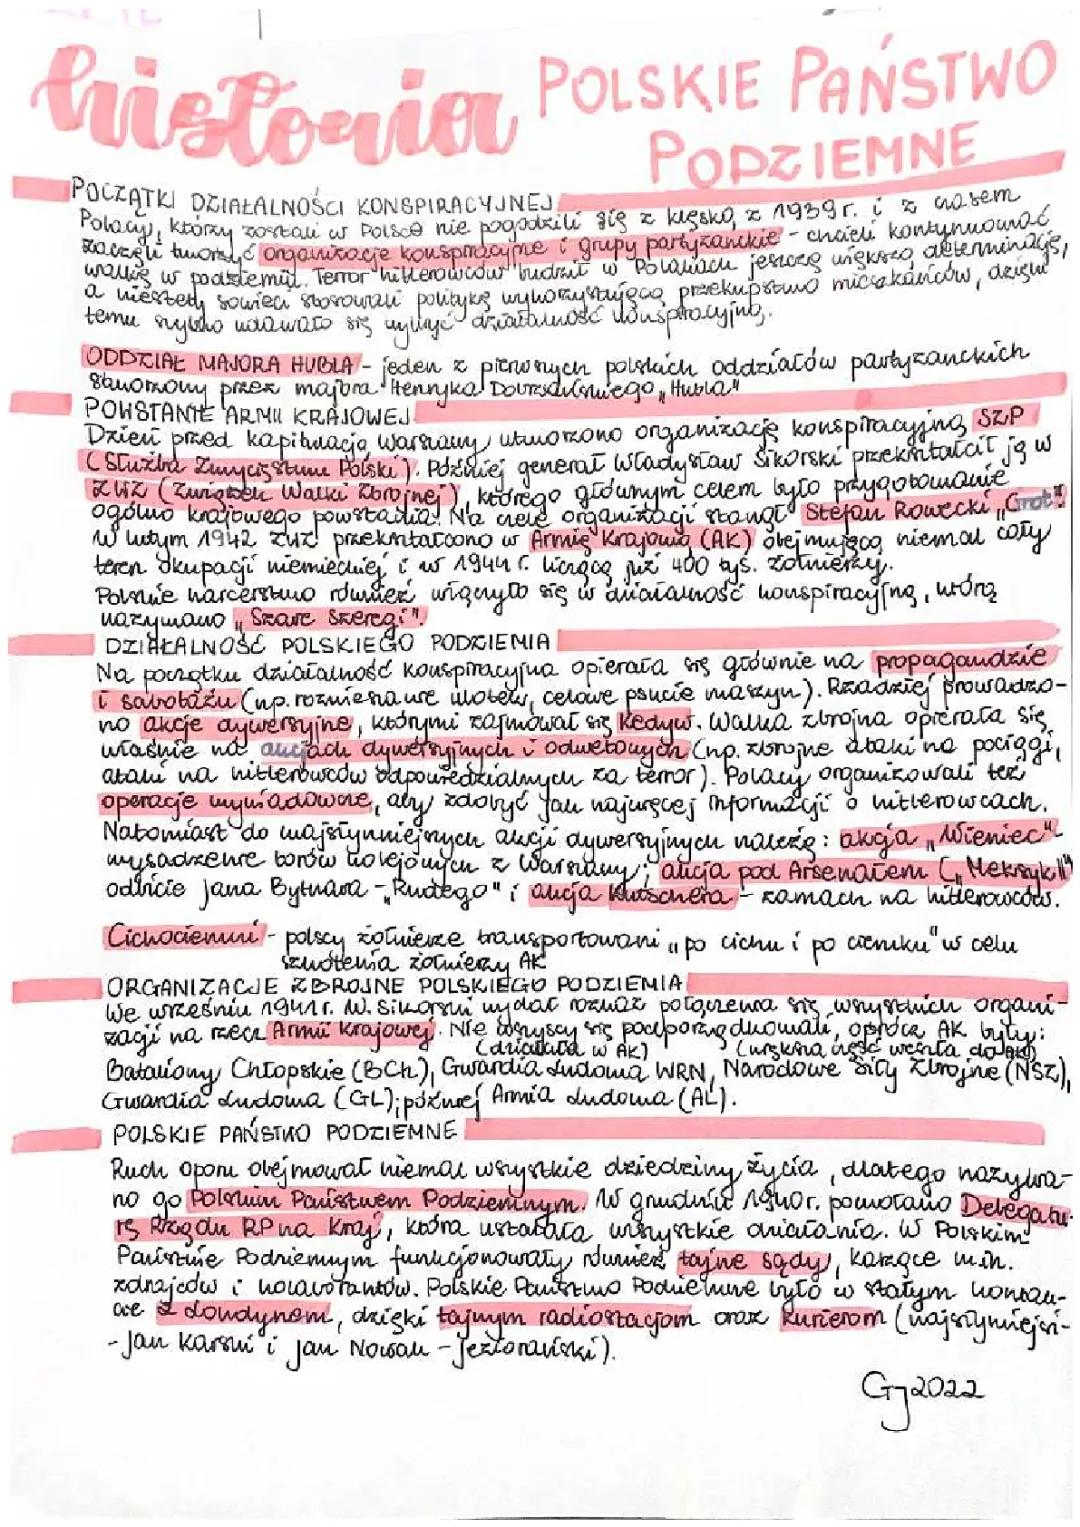 historia POLSKIE PAŃSTWO
PODZIEMNE
POCZĄTKI DZIAŁALNOŚCI KONSPIRACYJNEJ
Polacy, którzy zostali w Polsce nie pogodzili się z klęską z 1939r. i z czasem
zaczęli tworzyć organizacje konspiracyjne i grupy partyzanckie - chcieli kontynuować
walkę w podziemiu. Terror hitlerowców budził w Polakach jeszcze większą determinację,
a niestety sowieci stosowali politykę wykorzystującą przekupstwo mieszkańców, dzięki
temu szybko udawało się wykryć działalność konspiracyjną.
ODDZIAŁ MAJORA HUBLA - jeden z pierwszych polskich oddziałów partyzanckich
stworzony przez majora Henryka Dobrzańskiego "Hubla"
POWSTANIE ARMII KRAJOWEJ
Dzień przed kapitulacją Warszawy utworzono organizację konspiracyjną SZP
(Służba Zwycięstwu Polski). Później generał Władysław Sikorski przekształcił ją w
ZWZ (Związek Walki Zbrojnej), którego głównym celem było przygotowanie
ogólno krajowego powstania. Na czele organizacji stanął Stefan Rowecki „Grot".
W lutym 1942 ZWZ przekształcono w Armię Krajową (AK) obejmującą niemal cały
teren okupacji niemieckiej i w 1944 r. liczącą już 400 tyś. żołnierzy.
Polskie harcerstwo również włączyło się w działalność konspiracyjną, którą
nazywano „Szare Szeregi".
DZIAŁALNOŚĆ POLSKIEGO PODZIEMIA
Na początku działalność konspiracyjna opierała się głównie na propagandzie
i sabotażu (np. rozwieszanie ulotek, celowe psucie maszyn). Rzadziej prowadzo-
no akcje dywersyjne, którymi zajmował się Kedyw. Walka zbrojna opierała się
właśnie na akcjach dywersyjnych i odwetowych (np. zbrojne ataki na pociągi,
ataki na hitlerowców odpowiedzialnych za terror). Polacy organizowali też
operacje wywiadowne, aby zdobyć jak najwięcej informacji o hitlerowcach.
Natomiast do najsłynniejszych akcji dywersyjnych należą: akcja „Wieniec"-
wysadzenie torów kolejowych z Warszawy; akcja pod Arsenałem („Meksyk II")
odbicie Jana Bytnara - „Rudego" i akcja Kutschera - zamach na hitlerowców.
Cichociemni - polscy żołnierze transportowani „po cichu i po ciemku" w celu
szkolenia żołnierzy AK
ORGANIZACJE ZBROJNE POLSKIEGO PODZIEMIA
We wrześniu 1941r. W. Sikorski wydał rozkaz połączenia się wszystkich organi-
zacji na rzecz Armii Krajowej. Nie wszyscy się podporządkowali, oprócz AK były:
(działała w AK) (większa część weszła do AK)
Bataliony Chłopskie (BCh), Gwardia Ludowa WRN, Narodowe Siły Zbrojne (NSZ),
Gwardia Ludowa (GL); później Armia Ludowa (AL).
POLSKIE PAŃSTWO PODZIEMNE
Ruch oporu obejmował niemal wszystkie dziedziny życia, dlatego nazywa-
no go Polskim Państwem Podziemnym. W grudniu 1940r. powołano Delegatu-
rę Rządu RP na Kraj, która ustalała wszystkie działania. W Polskim
Państwie Podziemnym funkcjonowały również tajne sądy, karzące m.in.
zdrajców i kolaborantów. Polskie Państwo Podziemne było w stałym kontak-
cie z Londynem, dzięki tajnym radiostacjom oraz kurierom (najsłynniejsi-
- Jan Karski i Jan Nowak - Jeziorański).
GJ 2022